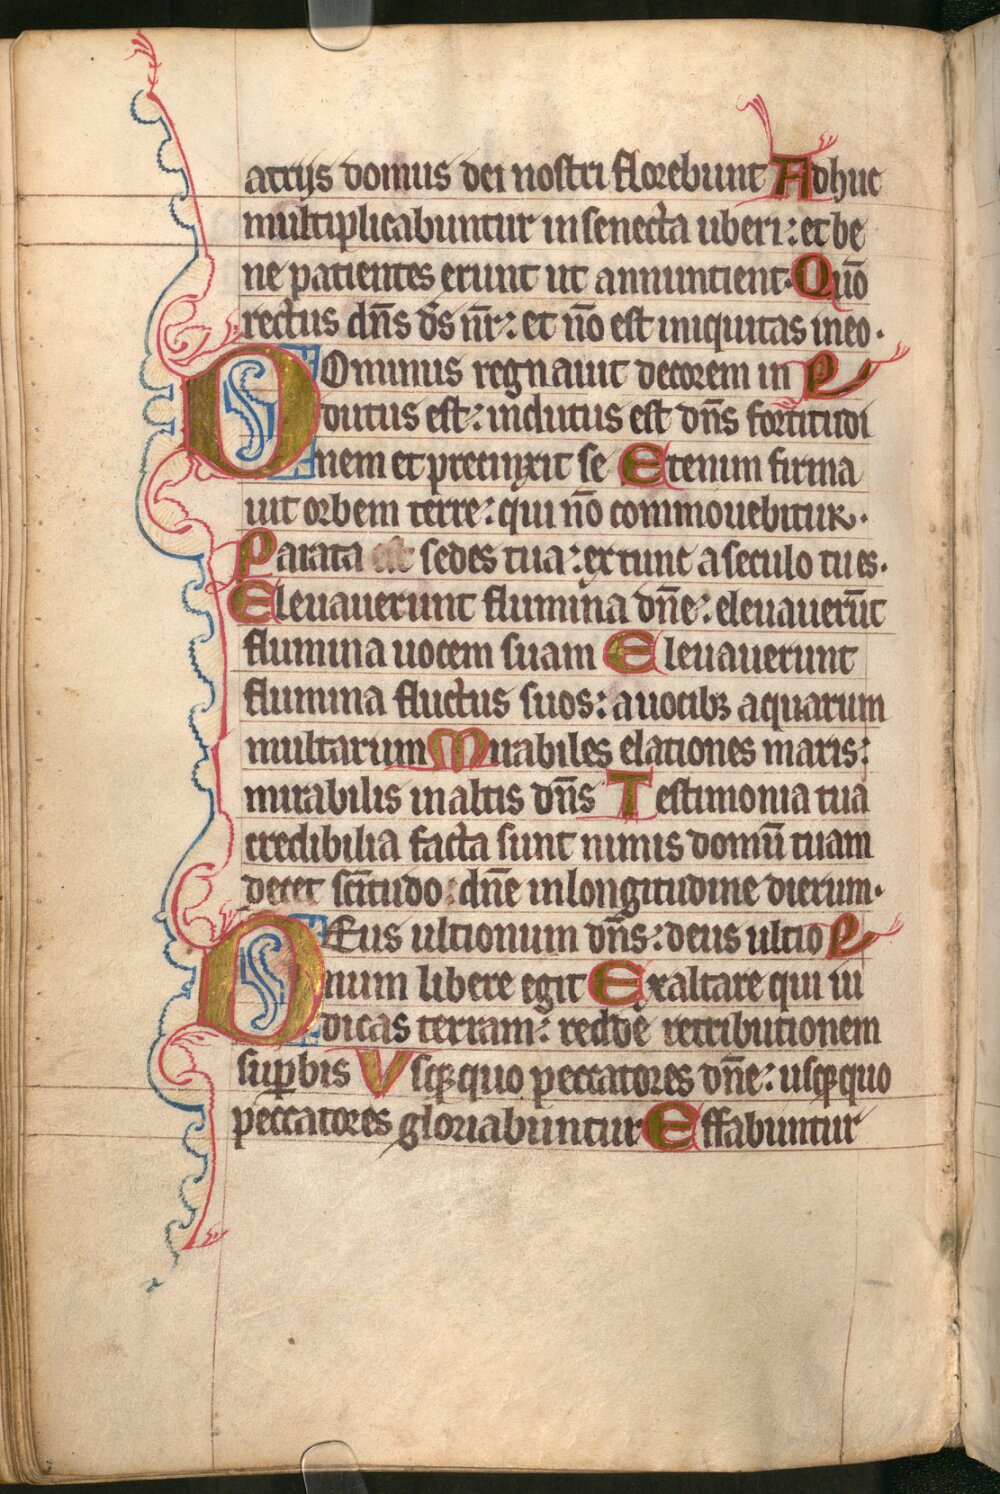 atrijs domus dei nostri florebunt Adhuc
multiplicabuntur in senecta uberi: et be
ne patientes erunt ut annuntient. Quō
rectus dn̄s ds̄ nr̄: et nō est iniquitas in eo.
Ominus regnauit decorem in
dutus est: indutus est dn̄s fortitudi
nem et precinxit se Etenim firma
uit orbem terre: qui nō commouebitur.
Parata est sedes tua: ex tunc a seculo tu es.
Eleuauerunt flumina dn̄e: eleuauerūt
flumina uocem suam Eleuauerunt
flumina fluctus suos: a uocibꝫ aquarum
multarum Mirabiles elationes maris:
mirabilis in altis dn̄s Testimonia tua
credibilia facta sunt nimis domū tuam
decet scītudo: dn̄e in longitudine dierum.
DEus ultionum dn̄s: deus ultio
num libere egit Exaltare qui iu
dicas terram: redde retributionem
suꝑbis Vsqꝫquo peccatores dn̄e: usqꝫquo
peccatores gloriabuntur Effabuntur